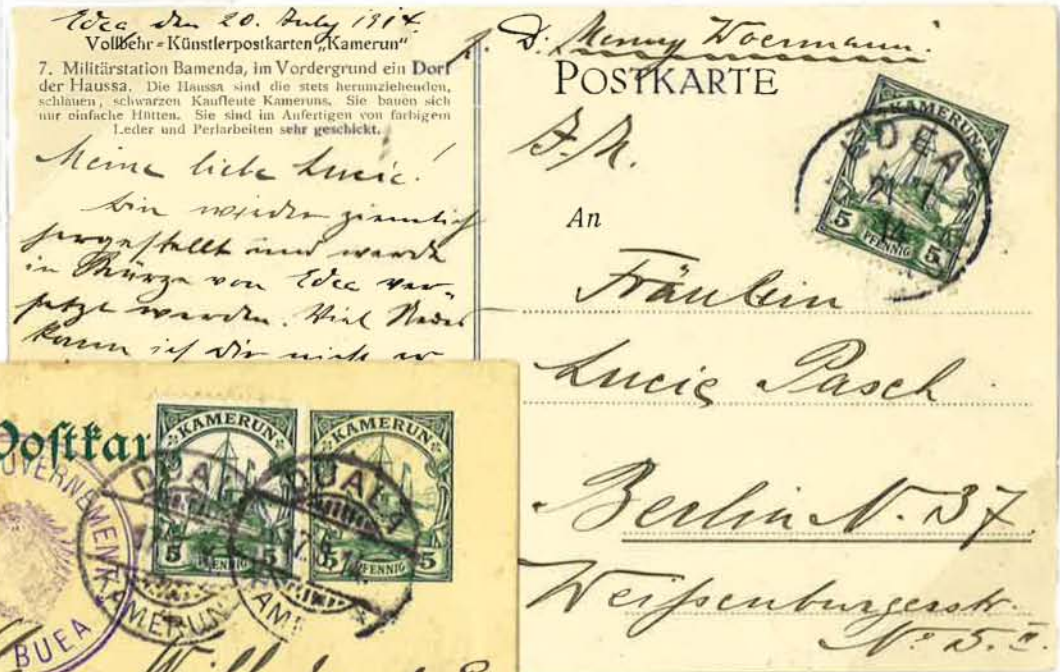 Edea den 20. July 1914.
Vollbehr-Künstlerpostkarten „Kamerun“
7. Militärstation Bamenda, im Vordergrund ein Dorf
der Haussa. Die Haussa sind die stets herumziehenden,
schlauen, schwarzen Kaufleute Kameruns. Sie bauen sich
nur einfache Hütten. Sie sind im Anfertigen von farbigem
Leder und Perlarbeiten sehr geschickt.
Meine liebe Lucie!
bin wieder ziemlich
hergestellt und werde
in Kürze von Edea ver-
setzt werden. Viel
kann ich Dir nicht er
D. Woermann.
POSTKARTE
An
Fräulein
Lucie Pasch
Berlin N. 37.
Weißenburgerstr.
KAMERUN
EDEA
21 7
14
5 PFENNIG 5
Postkar
KAMERUN
KAMERUN
DUALA
DUALA
17
5 PFENNIG 5
5 PFENNIG 5
KAMERUN
KAM
GOUVERNEMENT
BUEA